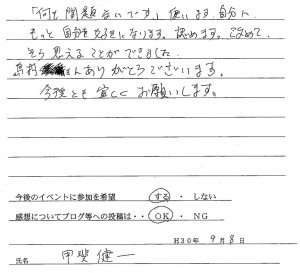 「何も問題ないです」使います。自分に
もっと自分を好きになります。認めます。改めて、
そう思えることができました。
馬村さんありがとうございます。
今後とも宜しくお願いします。
今後のイベントに参加を希望 する ・ しない
感想についてブログ等への投稿は・・ OK ・ NG
H30年 9月8日
氏名 甲斐健一